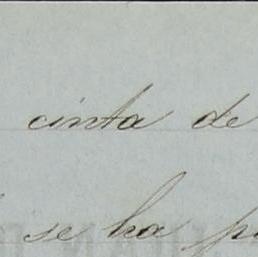 cinta de
se ha